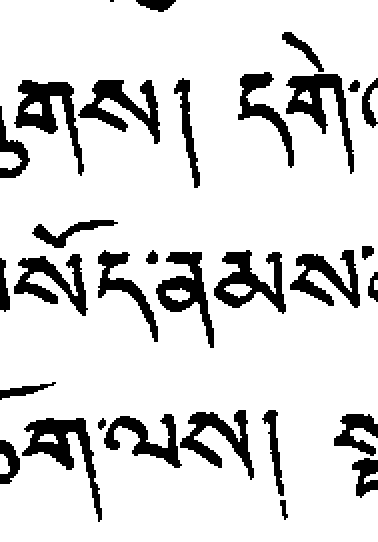 གས། དགེ་
སོད་ནམས་
ག་ལས།